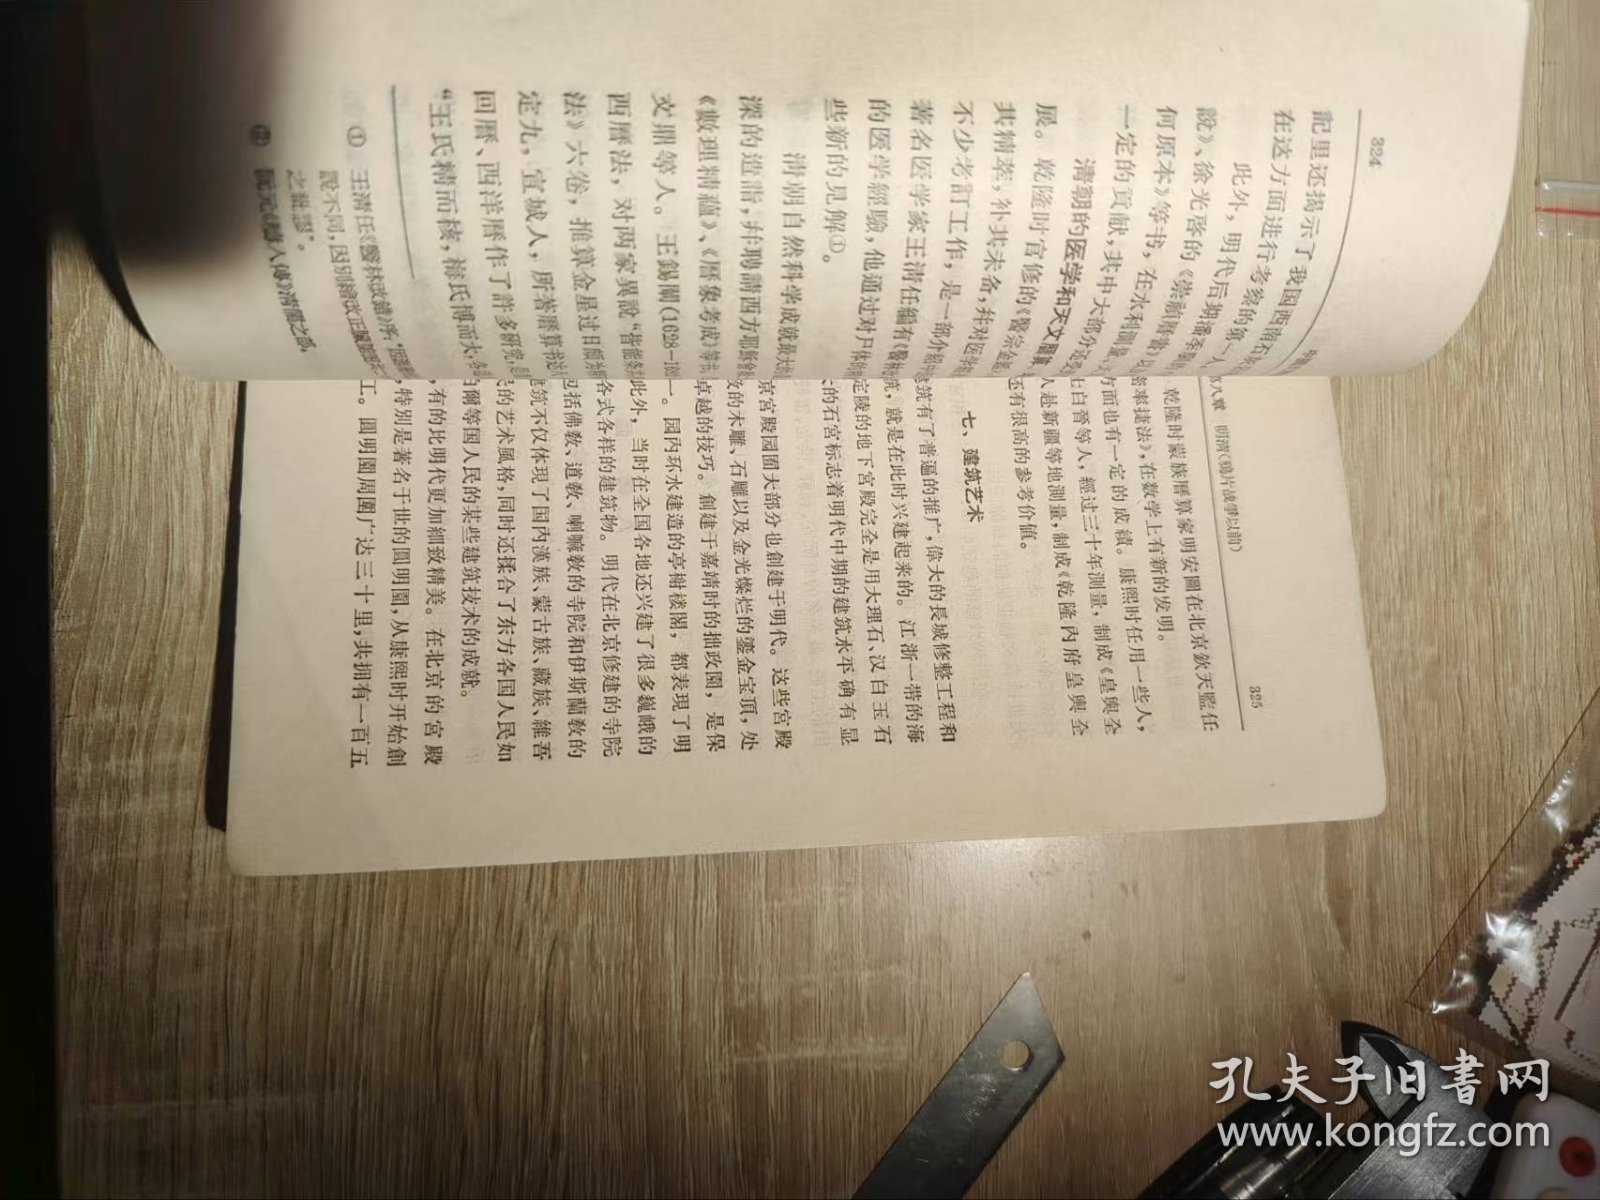 324
記里还揭示了我国西南石
在这方面进行考察的第一人
此外，明代后期潘季
說》、徐光啓的《崇禎曆書》
何原本》等书，在水利測量
一定的貢献，其中大部分还
清朝的医学和天文曆
展。乾隆时官修的《醫宗金
共精萃，补其未备，并对医
不少考訂工作，是一部介
著名医学家王清任編有《醫林
的医学經驗，他通过对尸体
些新的見解①。
清朝自然科学成就最大
深的造詣，并聘請西方耶穌会
《數理精蘊》、《曆象考成》等书
文鼎等人。王錫闡（1628—
西曆法，对两家異說“皆能
法》六卷，推算金星过日
定九，宣城人，所著曆算书
回曆、西洋曆作了許多研究，
“王氏精而核，梅氏博而大，各
① 王清任《醫林改錯》序：
說不同，因別繪改正臟腑图
之紕謬”。
② 阮元《疇人傳》清儒之部。
第八章 明清（鴉片战爭以前）
325
乾隆时蒙族曆算家明安圖在北京欽天監任
密率捷法》，在数学上有新的发明。
方面也有一定的成績。康熙时任用一些人，
士白晉等人，經过三十年測量，制成《皇輿全
人赴新疆等地測量，制成《乾隆內府皇輿全
还有很高的参考价值。
七、建筑艺术
建筑有了普遍的推广，偉大的長城修整工程和
筑，就是在此时兴建起来的。江浙一带的海
定陵的地下宮殿完全是用大理石、汉白玉石
的石宮标志着明代中期的建筑水平确有显
京宮殿园囿大部分也創建于明代。这些宮殿
的木雕、石雕以及金光燦烂的鎏金宝頂，处
卓越的技巧。創建于嘉靖时的拙政園，是保
一。园内环水建造的亭榭楼閣，都表现了明
此外，当时在全国各地还兴建了很多巍峨的
各式各样的建筑物。明代在北京修建的寺院
包括佛教、道教、喇嘛教的寺院和伊斯蘭教的
建筑不仅体现了国内漢族、蒙古族、藏族、維吾
民的艺术風格，同时还揉合了东方各国人民如
尔等国人民的某些建筑技术的成就。
，有的比明代更加細致精美。在北京的宮殿
，特别是著名于世的圓明園，从康熙时开始創
工。圓明園周圍广达三十里，共拥有一百五
孔夫子旧書网
www.kongfz.com